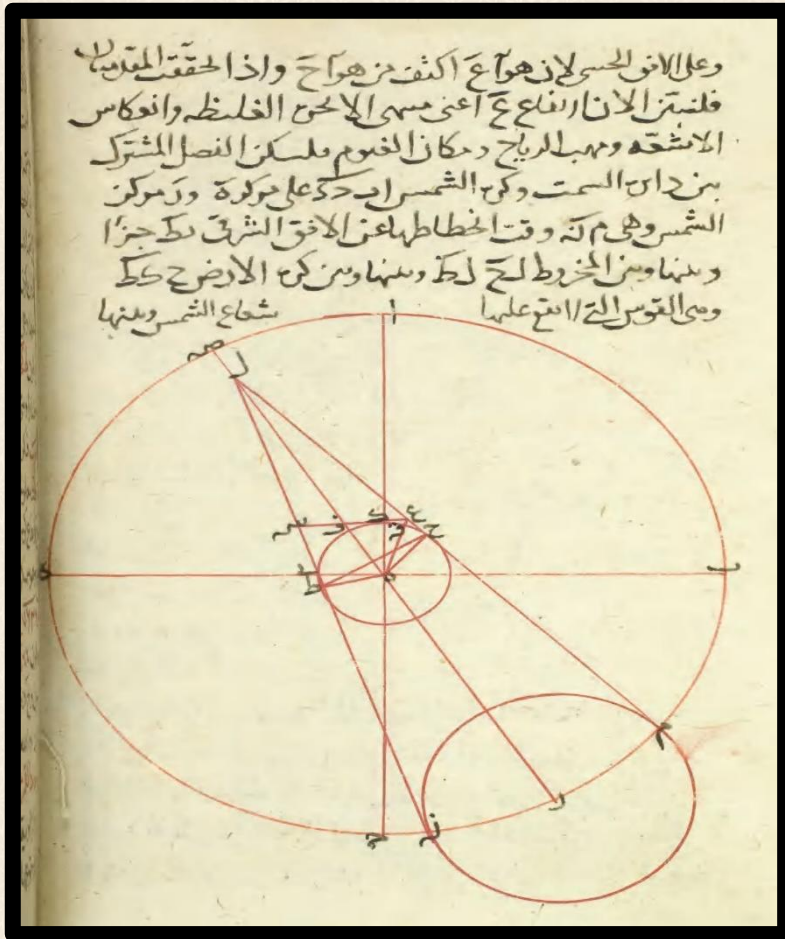 وعلى الافق الحسى لان هوآ ع اكثف من هوآ ح واذا تحققت المقدمات
فلنبين الان ارتفاع ع ع اعنى منتهى الابخرة الغليظه وانعكاس
الاشعه ومهب الرياح ومكان الغيوم فليكن الفصل المشترك
بين دايرة السمت وكرة الشمس على مركزه و ر مركز
الشمس وهى م ن وقت انحطاطها عن الافق الشرقى يط جزءا
وبينها وبين المخروط ل ح ل ط وبينها وبين كرة الارض ح ك ط
وهى القوس التى لا يقع عليها شعاع الشمس وبينها
ا
ص
ل
س
ف
ك
ق
ع
ح
ه
ط
ب
م
ر
ن